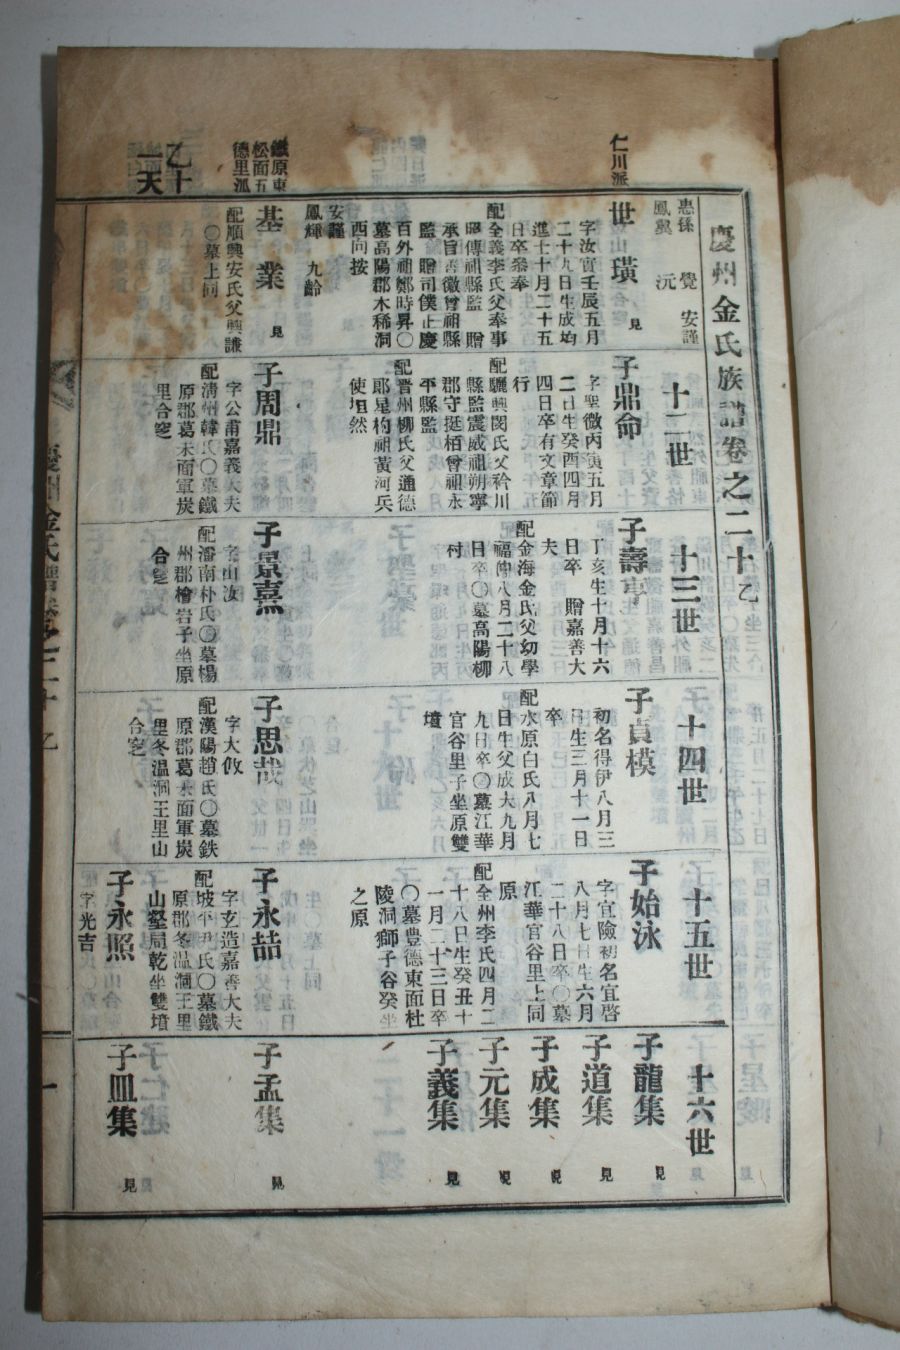 慶州金氏族譜卷之二十乙
惠孫
鳳翼
覺
沅
安謹
十二世
十三世
十四世
十五世
十六世
仁川派
世璜
見
字汝實壬辰五月
二十九日生成均
進士十月二十五
日卒參奉
配全義李氏父奉事
昭傳祖縣監 贈
承旨善徵曾祖縣
監 贈司僕正慶
百外祖鄭時昇〇
墓高陽郡木稀洞
酉向按
安謹
鳳輝 九齡
子鼎命
字聖徵丙寅五月
二日生癸酉四月
四日卒有文章節
行
配驪興閔氏父衿川
縣監震威祖朔寧
郡守挺栢曾祖永
平縣監
配晋州柳氏父通德
郞星杓祖黃河兵
使垣然
子壽亨
丁亥生十月十六
日卒 贈嘉善大
夫
配金海金氏父幼學
福仲八月二十八
日卒〇墓高陽柳
村
子貞模
初名得伊八月三
日生三月十一日
卒
配水原白氏八月七
日生父成大九月
九日卒〇墓江華
官谷里子坐原雙
墳
子始泳
字宜險初名宜啓
八月七日生六月
二十八日卒〇墓
江華官谷里上同
原
配全州李氏四月二
十八日生癸丑十
一月二十三日卒
〇墓豊德東面杜
陵洞獅子谷癸坐
之原
子龍集
見
子道集
見
子成集
見
子元集
見
子義集
見
鐵原東
松面五
德里派
基業
見
配順興安氏父興謙
〇墓上同
子周鼎
字公甫嘉義大夫
配淸州韓氏〇墓鐵
原郡葛末面軍炭
里合窆
子景熹
字山汝
配潘南朴氏〇墓楊
州郡檜岩子坐原
合窆
子思哉
字大攸
配漢陽趙氏〇墓鉄
原郡葛末面軍炭
里冬温洞王里山
合窆
子永喆
字玄造嘉善大夫
配坡平尹氏〇墓鐵
原郡冬温洞王里
山壑局乾坐雙墳
子孟集
見
乙十
一天
子永照
字光吉
子皿集
見
一